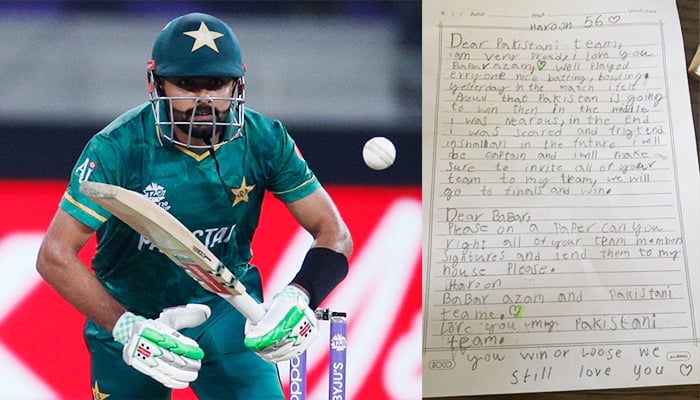 Ai
PAKISTAN
BYJU'S
HAROON 56
Dear Pakistani team,
i am very Proudy i love you
BaBar azam, well Played
erryone nice batting, bowling,
yesterday in the match i felt
Proud that Pakistan is going
to win then in the middle
i was nearous, in the end
i was scared and frigtend
inshallah in the future i will
be captain and i will make
sure to invite all of your
team to my team, we will
go to finals and win.
Dear Babar,
Please on a Paper can you
right all of your team members
signtures and send them to my
house Please.
Haroon
BaBar azam and Pakistani
teame.
Love you my Pakistani
team.
you win or loose we
still love you